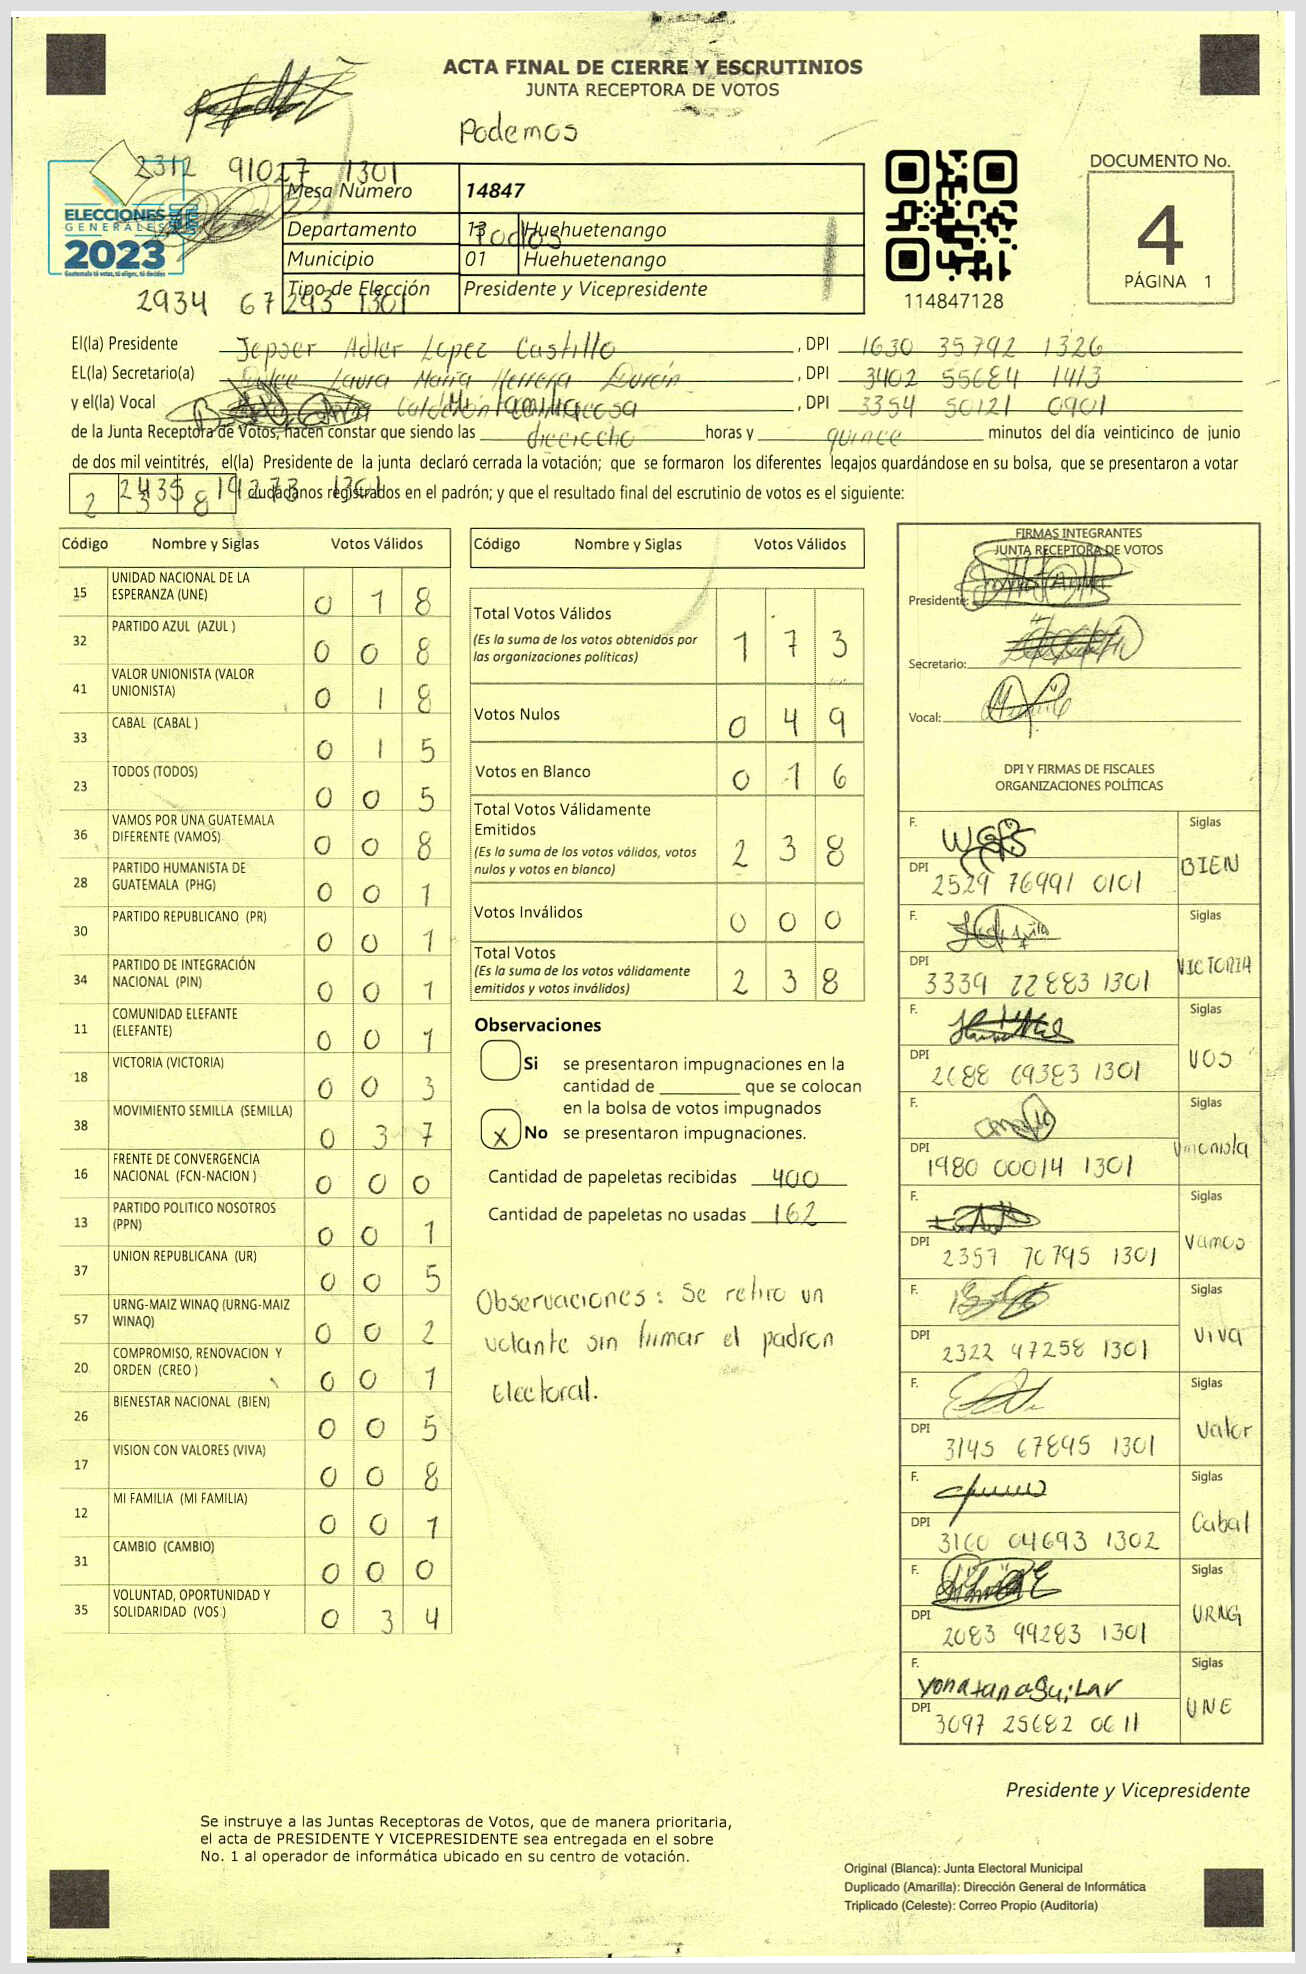 ACTA FINAL DE CIERRE Y ESCRUTINIOS
JUNTA RECEPTORA DE VOTOS
Podemos
2312 91027 1301
ELECCIONES
GENERALES
2023
Guatemala tú votas, tú eliges, tú decides
Mesa Número 14847
Departamento 13 Huehuetenango
Todos
Municipio 01 Huehuetenango
Tipo de Elección Presidente y Vicepresidente
2934 67293 1301
114847128
DOCUMENTO No.
4
PÁGINA 1
El(la) Presidente Jepser Adler Lopez Castillo , DPI 1630 35792 1326
EL(la) Secretario(a) Dulce Laura María Herrera Durán , DPI 3402 55684 1413
y el(la) Vocal Calderón , DPI 3354 50121 0901
Mi familia
de la Junta Receptora de Votos, hacen constar que siendo las dieciocho horas y quince minutos del día veinticinco de junio
de dos mil veintitrés, el(la) Presidente de la junta declaró cerrada la votación; que se formaron los diferentes legajos guardándose en su bolsa, que se presentaron a votar
2 3 8 ciudadanos registrados en el padrón; y que el resultado final del escrutinio de votos es el siguiente:
2435 19273 1301
Código Nombre y Siglas Votos Válidos
15 UNIDAD NACIONAL DE LA ESPERANZA (UNE) 0 1 8
32 PARTIDO AZUL (AZUL ) 0 0 8
41 VALOR UNIONISTA (VALOR UNIONISTA) 0 1 8
33 CABAL (CABAL ) 0 1 5
23 TODOS (TODOS) 0 0 5
36 VAMOS POR UNA GUATEMALA DIFERENTE (VAMOS) 0 0 8
28 PARTIDO HUMANISTA DE GUATEMALA (PHG) 0 0 1
30 PARTIDO REPUBLICANO (PR) 0 0 1
34 PARTIDO DE INTEGRACIÓN NACIONAL (PIN) 0 0 1
11 COMUNIDAD ELEFANTE (ELEFANTE) 0 0 1
18 VICTORIA (VICTORIA) 0 0 3
38 MOVIMIENTO SEMILLA (SEMILLA) 0 3 7
16 FRENTE DE CONVERGENCIA NACIONAL (FCN-NACION ) 0 0 0
13 PARTIDO POLITICO NOSOTROS (PPN) 0 0 1
37 UNION REPUBLICANA (UR) 0 0 5
57 URNG-MAIZ WINAQ (URNG-MAIZ WINAQ) 0 0 2
20 COMPROMISO, RENOVACION Y ORDEN (CREO ) 0 0 1
26 BIENESTAR NACIONAL (BIEN) 0 0 5
17 VISION CON VALORES (VIVA) 0 0 8
12 MI FAMILIA (MI FAMILIA) 0 0 1
31 CAMBIO (CAMBIO) 0 0 0
35 VOLUNTAD, OPORTUNIDAD Y SOLIDARIDAD (VOS ) 0 3 4
Código Nombre y Siglas Votos Válidos
Total Votos Válidos 1 7 3
(Es la suma de los votos obtenidos por
las organizaciones políticas)
Votos Nulos 0 4 9
Votos en Blanco 0 1 6
Total Votos Válidamente
Emitidos 2 3 8
(Es la suma de los votos válidos, votos
nulos y votos en blanco)
Votos Inválidos 0 0 0
Total Votos 2 3 8
(Es la suma de los votos válidamente
emitidos y votos inválidos)
Observaciones
Si se presentaron impugnaciones en la
cantidad de ________ que se colocan
en la bolsa de votos impugnados
X No se presentaron impugnaciones.
Cantidad de papeletas recibidas 400
Cantidad de papeletas no usadas 162
Observaciones: Se retiro un
votante sin firmar el padron
Electoral.
FIRMAS INTEGRANTES
JUNTA RECEPTORA DE VOTOS
Presidente:
Secretario:
Vocal:
DPI Y FIRMAS DE FISCALES
ORGANIZACIONES POLÍTICAS
F. Siglas
DPI 2529 76991 0101 BIEN
F. Siglas
DPI 3339 22883 1301 VICTORIA
F. Siglas
DPI 2688 69383 1301 VOS
F. Siglas
DPI 1980 00014 1301 Unionista
F. Siglas
DPI 2357 70795 1301 Vamos
F. Siglas
DPI 2322 47258 1301 VIVA
F. Siglas
DPI 3145 67895 1301 Valor
F. Siglas
DPI 3160 04693 1302 Cabal
F. Siglas
DPI 2083 99283 1301 URNG
F. Yonatan aguilar Siglas
DPI 3097 25682 0611 UNE
Presidente y Vicepresidente
Se instruye a las Juntas Receptoras de Votos, que de manera prioritaria,
el acta de PRESIDENTE Y VICEPRESIDENTE sea entregada en el sobre
No. 1 al operador de informática ubicado en su centro de votación.
Original (Blanca): Junta Electoral Municipal
Duplicado (Amarilla): Dirección General de Informática
Triplicado (Celeste): Correo Propio (Auditoría)